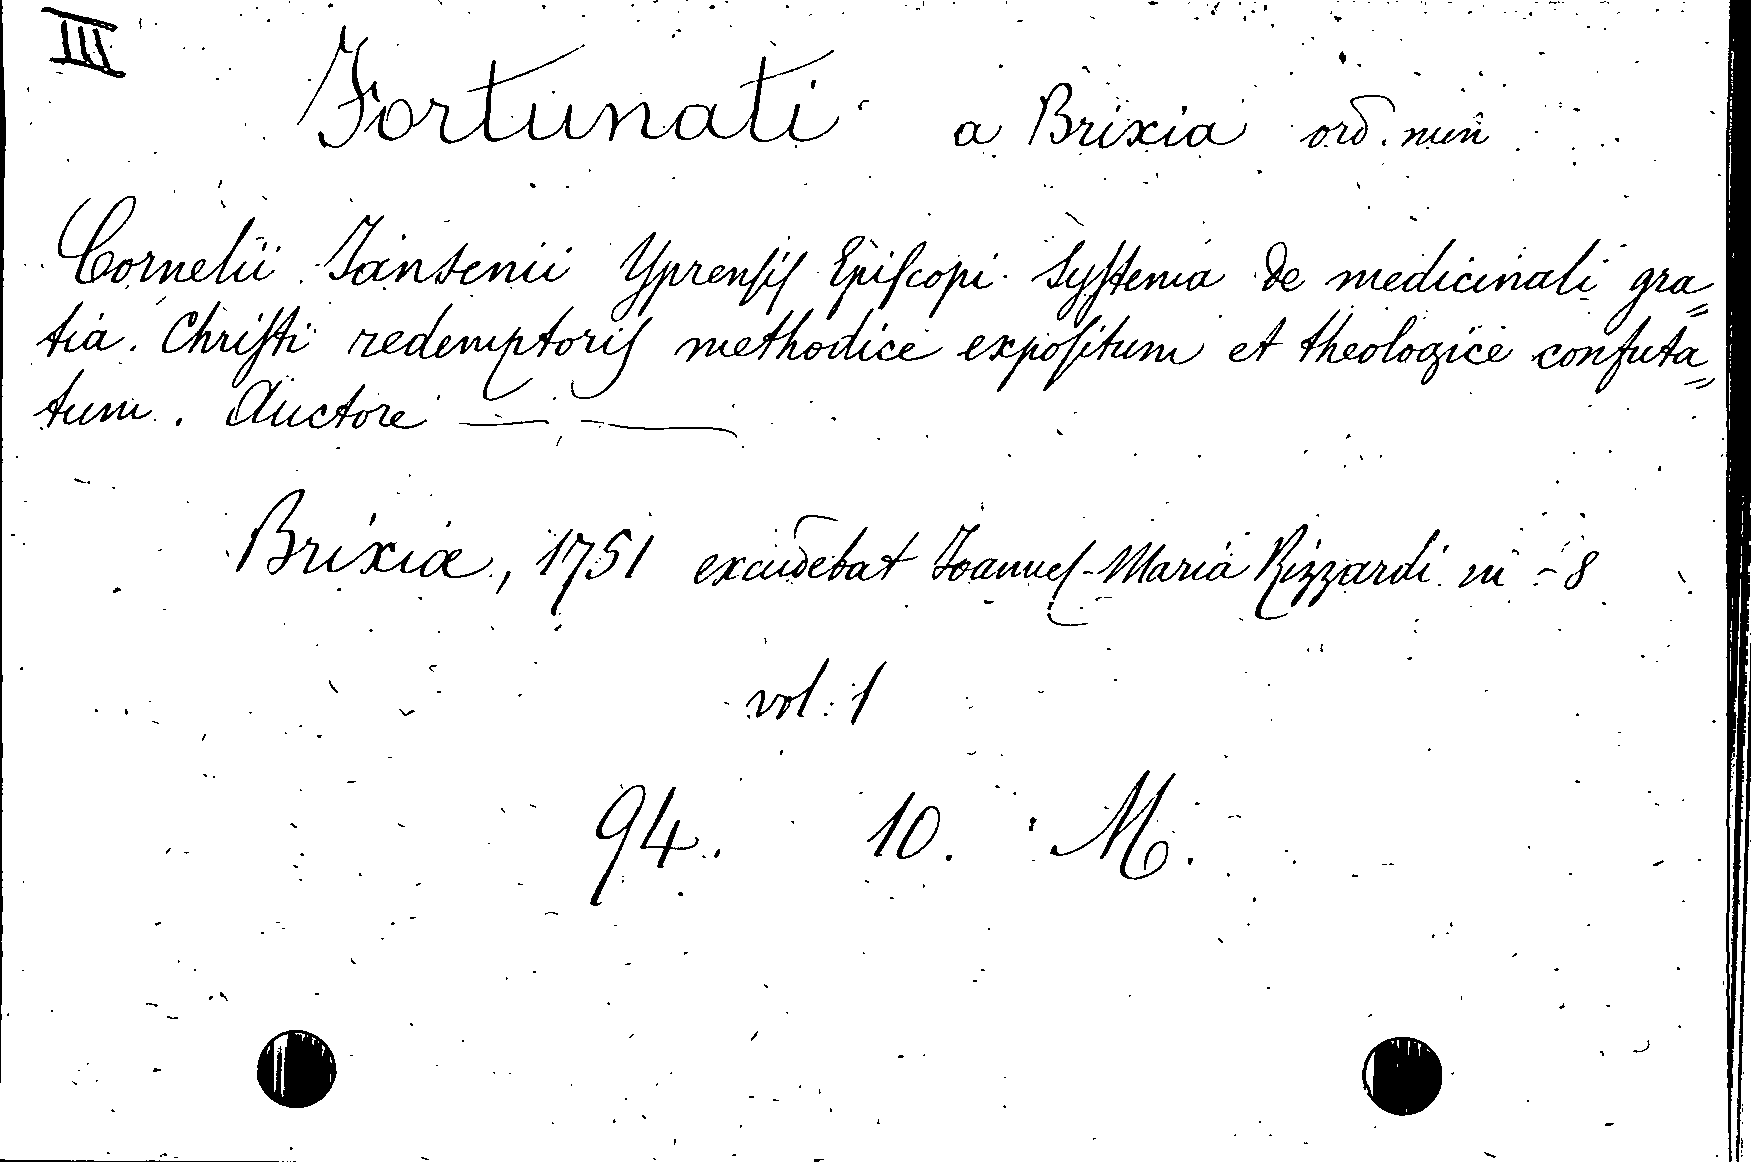 III
Fortunati a Brixia ord. min
Cornelii Jansenii Yprensis Episcopi Systema de medicinali gra=
tia Christi redemptoris methodice expositum et theologice confuta=
tum. Auctore — —
Brixiæ, 1751 excudebat Joannes-Maria Rizzardi in-8
vol: 1
94. 10. M.